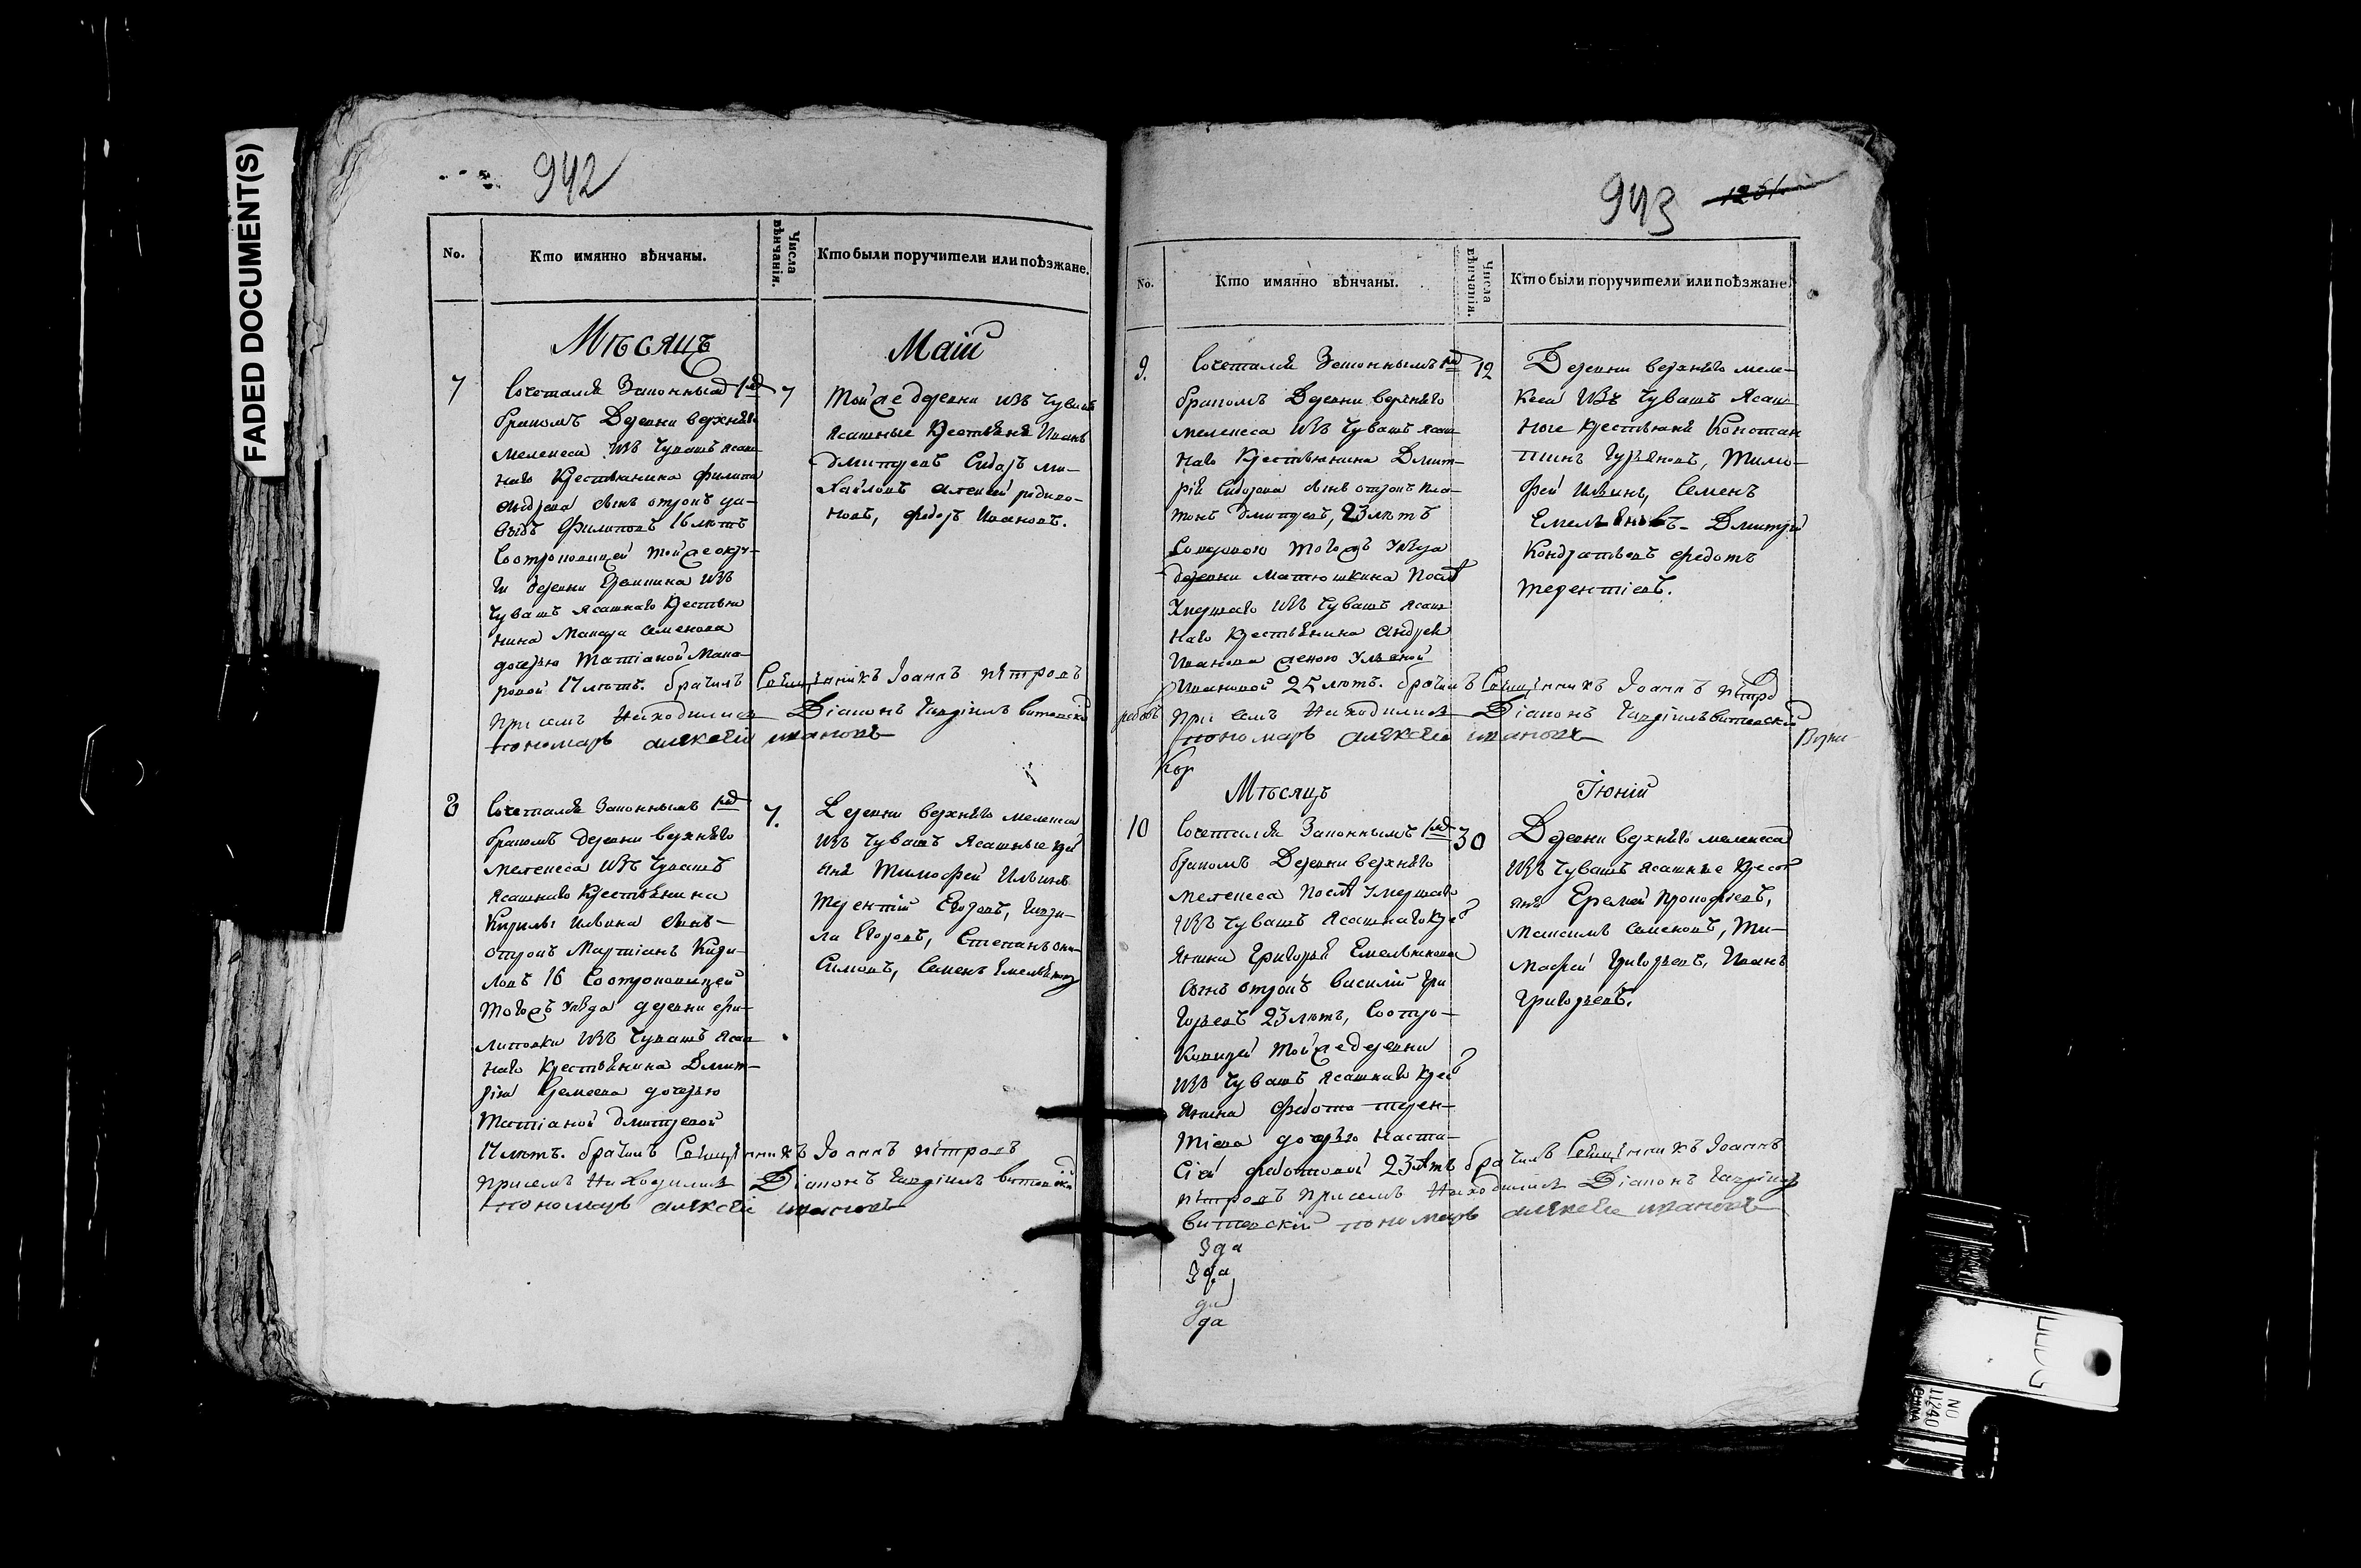 FADED DOCUMENT(S)
942
No.
Кто имянно вѣнчаны.
Числа вѣнчанія.
Кто были поручители или поѣзжане.
Мѣсяцъ Маій
7
Сочетался Законным 1м
бракомъ Деревни верхняго
мелекеса изъ Чувашъ ясаш
наго Крестьянина филипа
сынъ отрокъ
Филиповъ 16 лѣтъ
Соотроковицей тойже окру-
ги деревни изъ
Чувашъ ясашнаго Крестья
нина Макара семенова
дочерью Татіаной Мака-
ровой 17 лѣтъ. брачилъ Священникъ Іоаннъ пѣтровъ
При семъ Находились Діаконъ Гаврiилъ витевскій
пономарь алѣксѣй ивановъ
7
Тойже деревни изъ Чувашъ
ясашные Крестьяня Иванъ
Дмитріевъ Сидоръ ми-
хайловъ алексей родио-
новъ, федоръ Ивановъ.
8
Сочетался Законнымъ 1м
бракомъ деревни верхняго
мелекеса изъ Чувашъ
ясашнаго Крестьянина
Кирилы Ильина сынъ
отрокъ Мартіанъ Кири-
ловъ 16 Соотроковицей
тогожъ уѣзда деревни фи-
липовки изъ Чувашъ ясаш
наго Крестьянина Дмит-
рія Еремеева дочерью
Татіаной Дмитревой
17 лѣтъ. брачилъ Священникъ Іоаннъ пѣтровъ
При семъ Находились Діаконъ Гаврiилъ витевскій
пономарь алѣксѣй ивановъ
7.
Деревни верхняго мелекеса
изъ Чувашъ ясашные кре
яня Тимофей Ильинъ
Терентій Егоровъ, Гаври-
ла Егоровъ, Степанъ они-
симовъ, Семенъ Емельяновъ
943
1251
No.
Кто имянно вѣнчаны.
Числа вѣнчанія.
Кто были поручители или поѣзжане.
9.
Сочетался Законнымъ 1м
бракомъ Деревни верхняго
мелекеса изъ Чувашъ ясаш
наго Крестьянина Дмит-
рія Сидорова сынъ отрокъ Пла-
тонъ Дмитріевъ, 23 лѣтъ
Совдовою тогожъ уѣзда
деревни матюшкина Послѣ
Умершаго изъ Чувашъ ясаш
наго Крестьянина андрея
Иванова женою Ульяной
Ивановой 25 лѣтъ. брачилъ Священникъ Іоаннъ пѣтров
При семъ Находились Діаконъ Гаврiилъ витевскій
пономарь алѣксѣй ивановъ
12
Деревни верхняго меле-
кеса изъ Чувашъ ясаш
ные крестьяня Констан
тинъ Гурьяновъ, Тимо-
фей Ильинъ, Семенъ
Емельяновъ Дмитрій
Кондратьевъ федотъ
терентіевъ.
Мѣсяцъ Іюній
10
Сочетался Законнымъ 1м
бракомъ Деревни верхняго
мелекеса Послѣ Умершаго
изъ Чувашъ ясашнаго кре
янина Григорья Емельянова
сынъ отрокъ Василій Гри
горьевъ 23 лѣтъ, Соотро-
ковицей тойже деревни
изъ Чувашъ ясашнаго Крес
янина федота терен-
тіева дочерью наста-
сіей федотовой 23 лѣтъ брачилъ Священникъ Іоаннъ
пѣтровъ При семъ Находились Діаконъ Гаврiилъ
витевскій пономарь алѣксѣй ивановъ
30
Деревни верхняго мелекеса
изъ Чувашъ ясашные Крест
яня Еремей Прокофьевъ,
Максимъ Семеновъ, Ти-
мофей Григорьевъ, Иванъ
Григорьевъ.
да